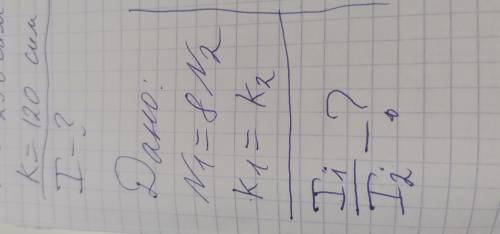 K = 120 сим
I - ?
Дано:
N1 = 8N2
K1 = K2
I1/I2 - ?